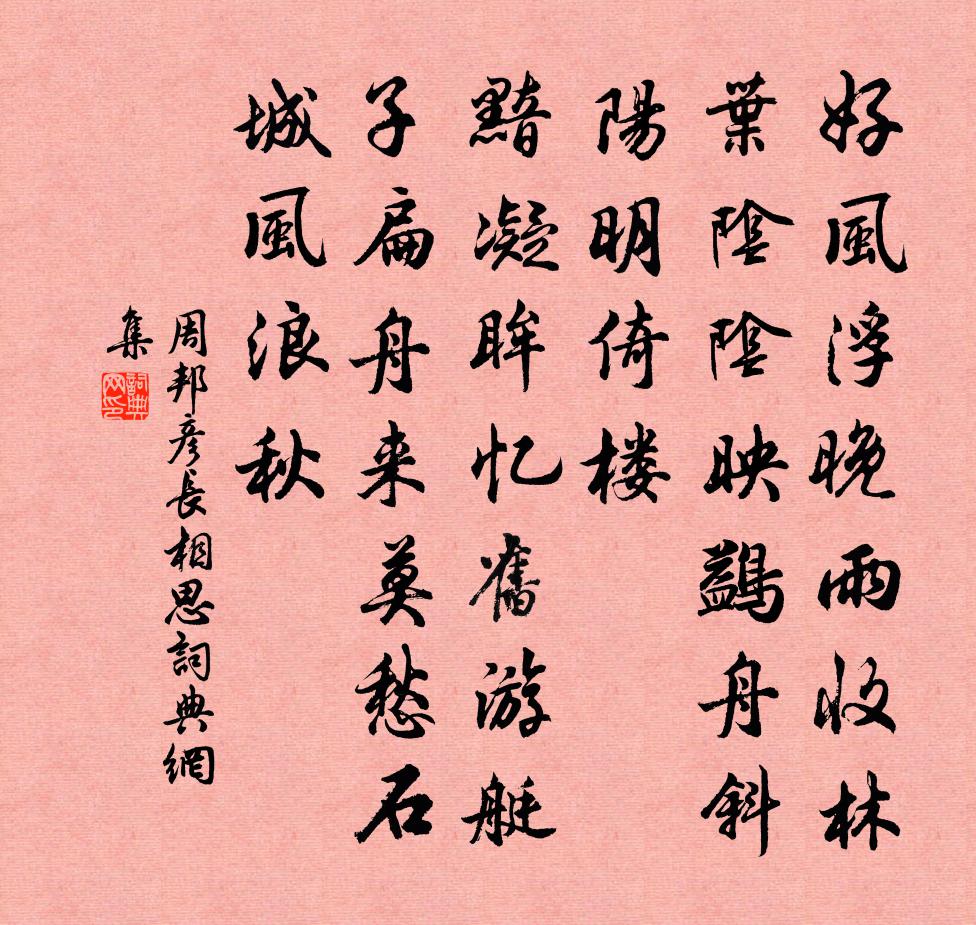 好風浮晚雨收林
葉陰陰映鷁舟斜
陽明倚楼
黯凝眸忆舊游艇
子扁舟来莫愁石
城風浪秋
周邦彦長相思詞典網
集
詞典網印